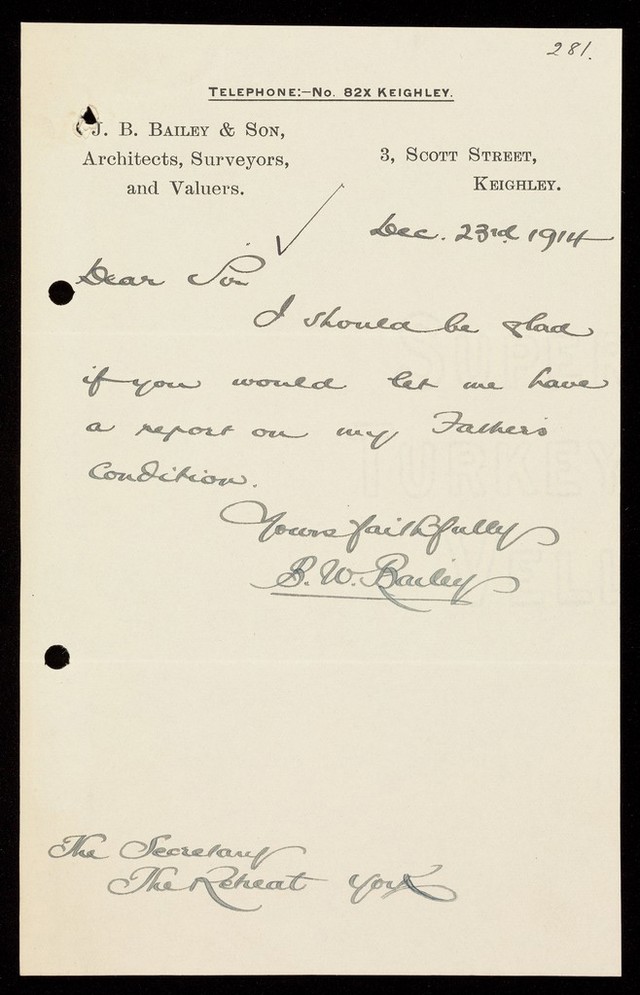 281.
TELEPHONE:—No. 82X KEIGHLEY.
J. B. BAILEY & SON,
Architects, Surveyors,
and Valuers.
3, SCOTT STREET,
KEIGHLEY.
Dec. 23rd 1914
Dear Sir
I should be glad
if you would let me have
a report on my Father's
condition.
Yours faithfully
B. W. Bailey
The Secretary
The Retreat York